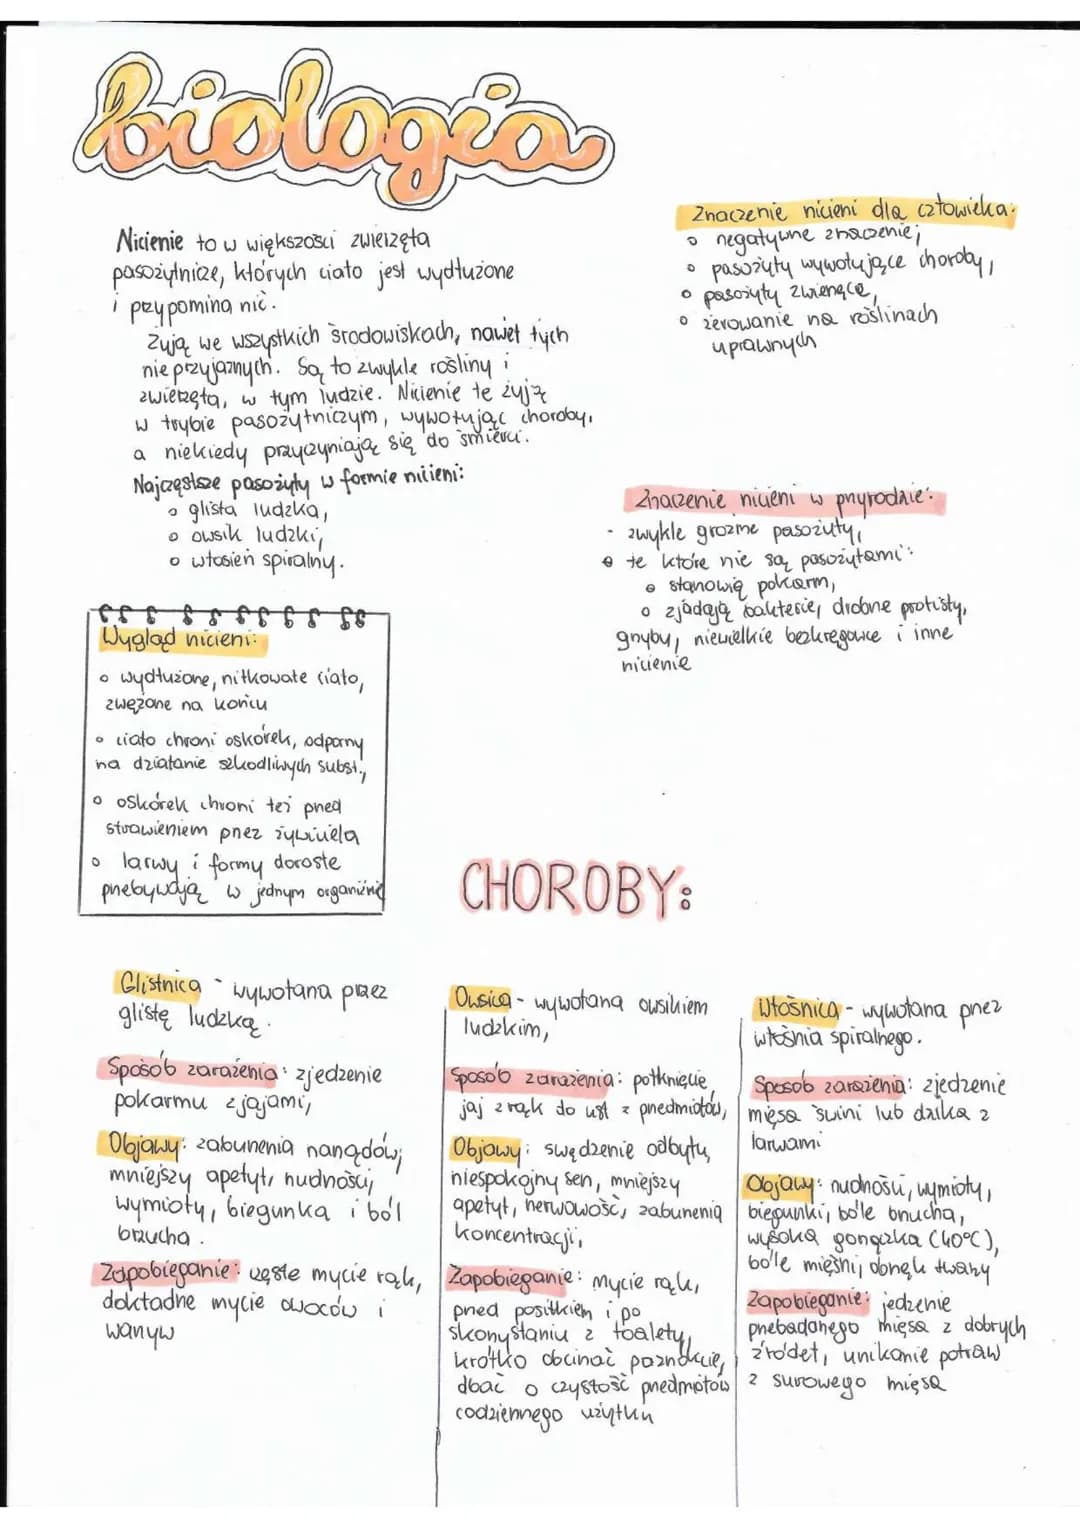 biologia
Nicienie to w większości zwierzęta
pasożytnicze, których ciało jest wydłużone
i przypomina nić.
Żyją we wszystkich środowiskach, nawet tych
nieprzyjaznych. Są to zwykle rośliny i
zwierzęta, w tym ludzie. Nicienie te żyją
w trybie pasożytniczym, wywołując choroby,
a niekiedy przyczyniają się do śmierci.
Najczęstsze pasożyty w formie nicieni:
o glista ludzka,
o owsik ludzki,
o włosień spiralny.
Wygląd nicieni:
o wydłużone, nitkowate ciało,
zwężone na końcu
o ciało chroni oskórek, odporny
na działanie szkodliwych subst.,
o oskórek chroni też przed
strawieniem przez żywiciela
o larwy i formy dorosłe
przebywają w jednym organizmie
Znaczenie nicieni dla człowieka:
o negatywne znaczenie,
o pasożyty wywołujące choroby,
o pasożyty zwierzęce,
o żerowanie na roślinach
uprawnych
Znaczenie nicieni w przyrodzie:
- zwykle groźne pasożyty,
o te które nie są pasożytami:
o stanowią pokarm,
o zjadają bakterie, drobne protisty,
grzyby, niewielkie bezkręgowce i inne
nicienie
CHOROBY:
Glistnica - wywołana przez
glistę ludzką.
Sposób zarażenia: zjedzenie
pokarmu z jajami,
Objawy: zaburzenia narządów,
mniejszy apetyt, nudności,
wymioty, biegunka i ból
brzucha.
Zapobieganie: częste mycie rąk,
dokładne mycie owoców i
warzyw
Owsica - wywołana owsikiem
ludzkim,
Sposób zarażenia: połknięcie
jaj z rąk do ust z przedmiotów,
Objawy: swędzenie odbytu,
niespokojny sen, mniejszy
apetyt, nerwowość, zaburzenia
koncentracji,
Zapobieganie: mycie rąk,
przed posiłkiem i po
skorzystaniu z toalety,
krótko obcinać paznokcie,
dbać o czystość przedmiotów
codziennego użytku
Włośnica - wywołana przez
włośnia spiralnego.
Sposób zarażenia: zjedzenie
mięsa świni lub dzika z
larwami
Objawy: nudności, wymioty,
biegunki, bóle brzucha,
wysoka gorączka (40°C),
bóle mięśni, obrzęk twarzy
Zapobieganie: jedzenie
przebadanego mięsa z dobrych
źródeł, unikanie potraw
z surowego mięsa